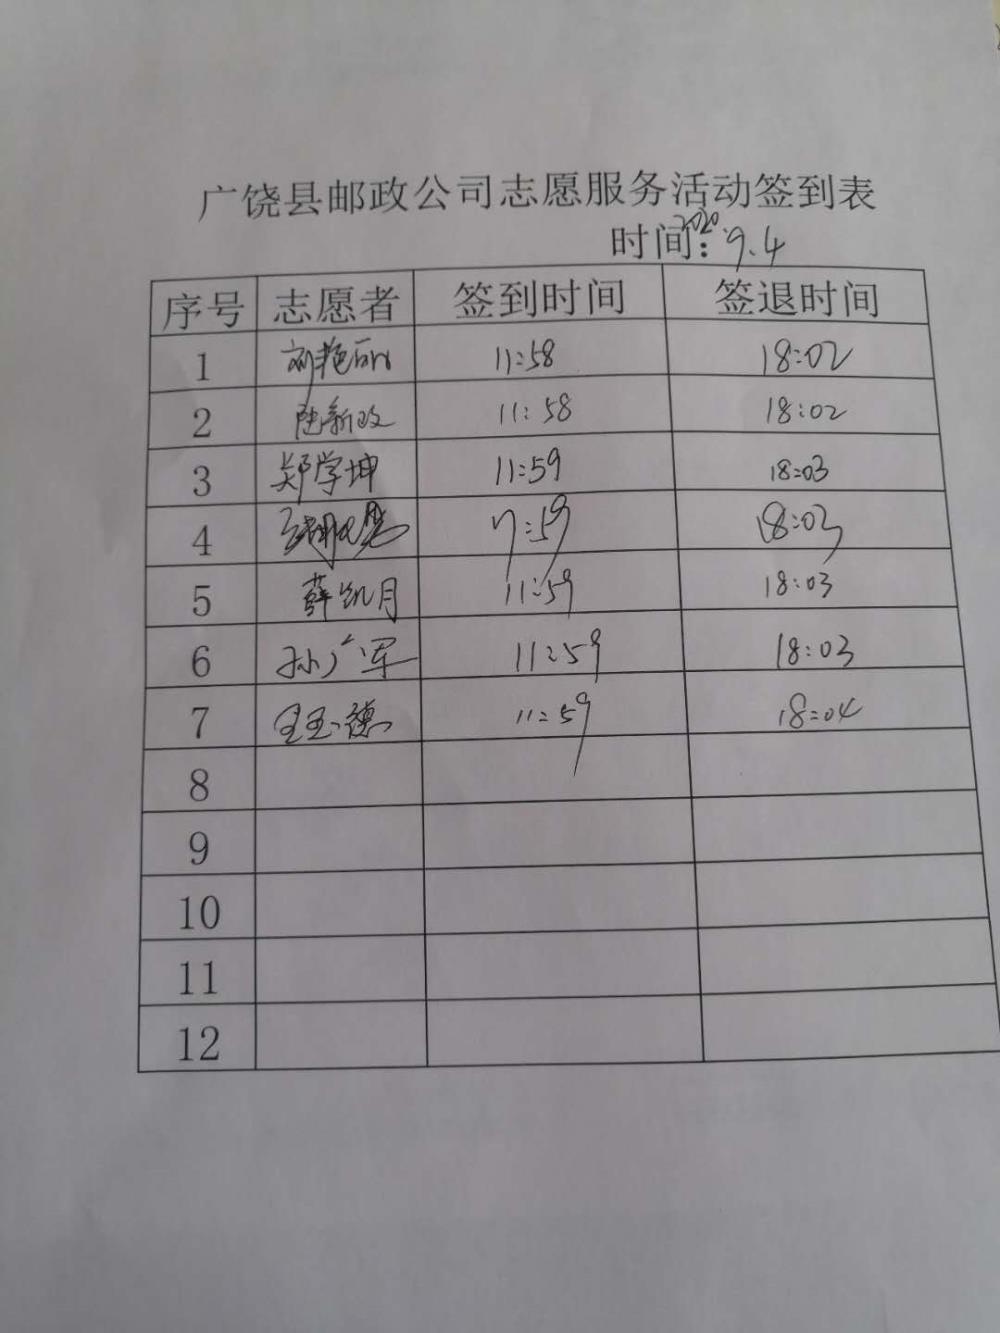 广饶县邮政公司志愿服务活动签到表
时间：2020.9.4
序号 志愿者 签到时间 签退时间
1 刘艳丽 11:58 18:02
2 陆新政 11:58 18:02
3 郑学坤 11:59 18:03
4 18:03
5 薛凯月 11:59 18:03
6 孙广军 11:59 18:03
7 王玉德 11:59 18:04
8
9
10
11
12